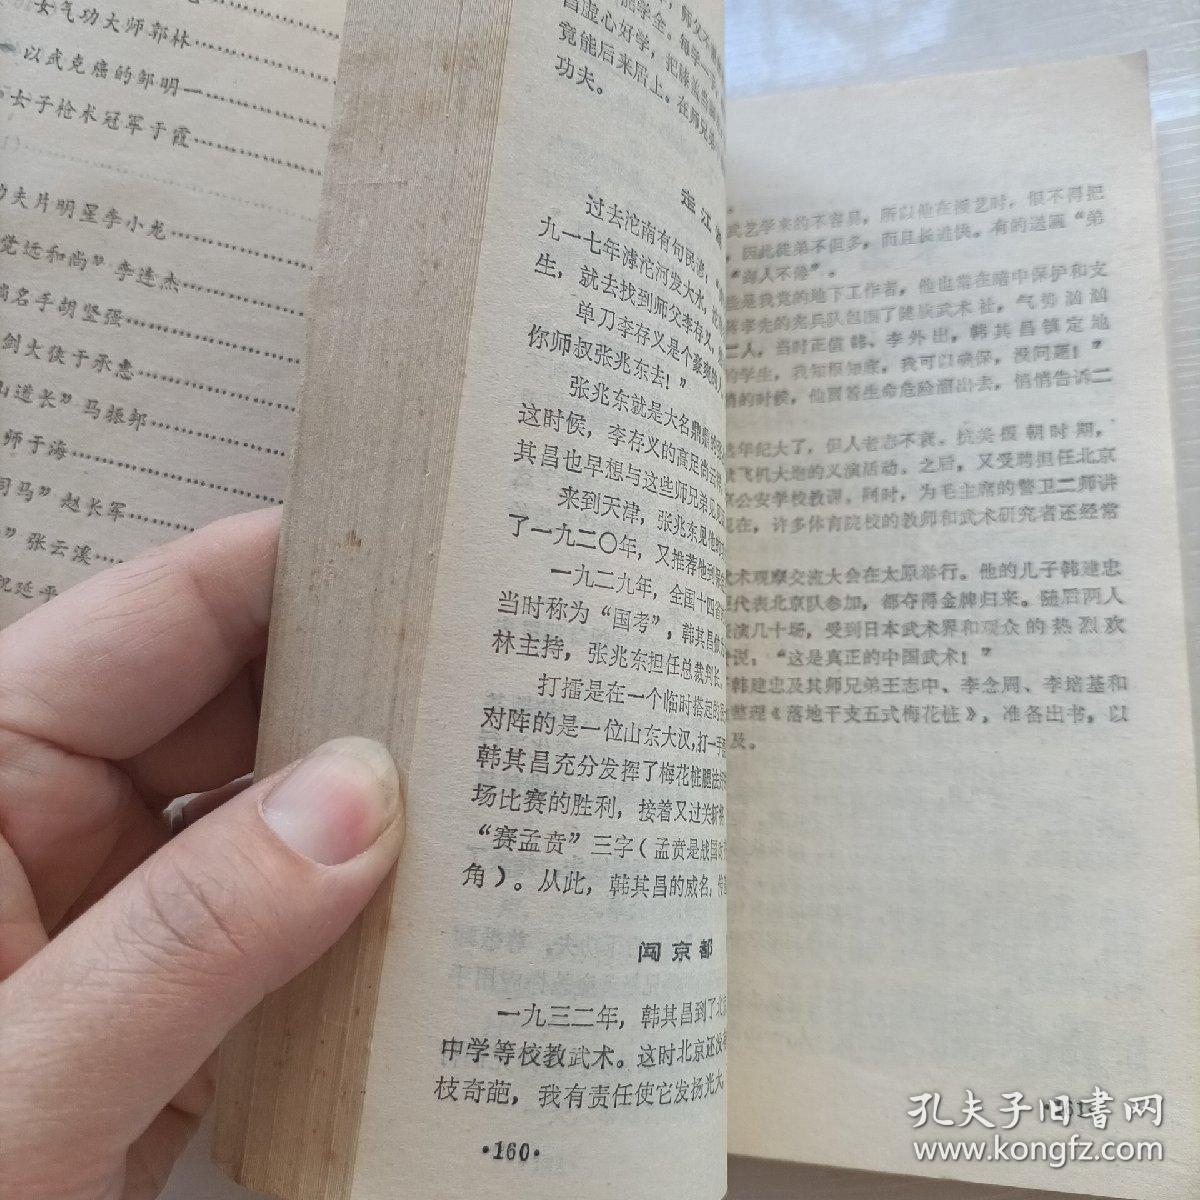 女气功大师郭林
以武克癌的邹明
女子枪术冠军于霞
功夫片明星李小龙
觉远和尚”李连杰
名手胡坚强
剑大侠于承惠
山道长”马振邦
师于海
司马”赵长军
”张云溪
祝延平
师父不
能学全。每学一
昌虚心好学，把
竟能后来居上。在师兄弟
功夫。
走江
过去沱南有句民谚，
九一七年滹沱河发大水，
生，就去找到师父李存义，
单刀李存义是个豪爽的
你师叔张兆东去！”
张兆东就是大名鼎鼎的
这时候，李存义的高足尚云祥
其昌也早想与这些师兄弟见
来到天津，张兆东见他
了一九二〇年，又推荐他到保
一九二九年，全国十四省
当时称为“国考”，韩其昌
林主持，张兆东担任总裁判长。
打擂是在一个临时搭起的
对阵的是一位山东大汉，打一手
韩其昌充分发挥了梅花桩腿法
场比赛的胜利，接着又过关斩将
“赛孟贲”三字（孟贲是战国时
角）。从此，韩其昌的威名，传
闯京都
一九三二年，韩其昌到了北
中学等校教武术。这时北京还没有
枝奇葩，我有责任使它发扬光大。
·160·
武艺学来的不容易，所以他在授艺时，恨不得把
，因此徒弟不但多，而且长进快。有的送匾“第
“诲人不倦”。
些是我党的地下工作者，他也常在暗中保护和文
蒋孝先的宪兵队包围了健族武术社，气势汹汹
二人，当时正值韩、李外出，韩其昌镇定地
的学生，我知根知底，我可以确保，没问题！”
悄的时候，他冒着生命危险溜出去，悄悄告诉二
然年纪大了，但人老志不衰。抗美援朝时期，
献飞机大炮的义演活动。之后，又受聘担任北京
京公安学校教课。同时，为毛主席的警卫二师讲
现在，许多体育院校的教师和武术研究者还经常
武术观摩交流大会在太原举行。他的儿子韩建忠
代表北京队参加，都夺得金牌归来。随后两人
表演几十场，受到日本武术界和观众的热烈欢
说，“这是真正的中国武术！”
韩建忠及其师兄弟王志中、李念周、李培基和
整理《落地干支五式梅花桩》，准备出书，以
及。
孔夫子旧书网
www.kongfz.com